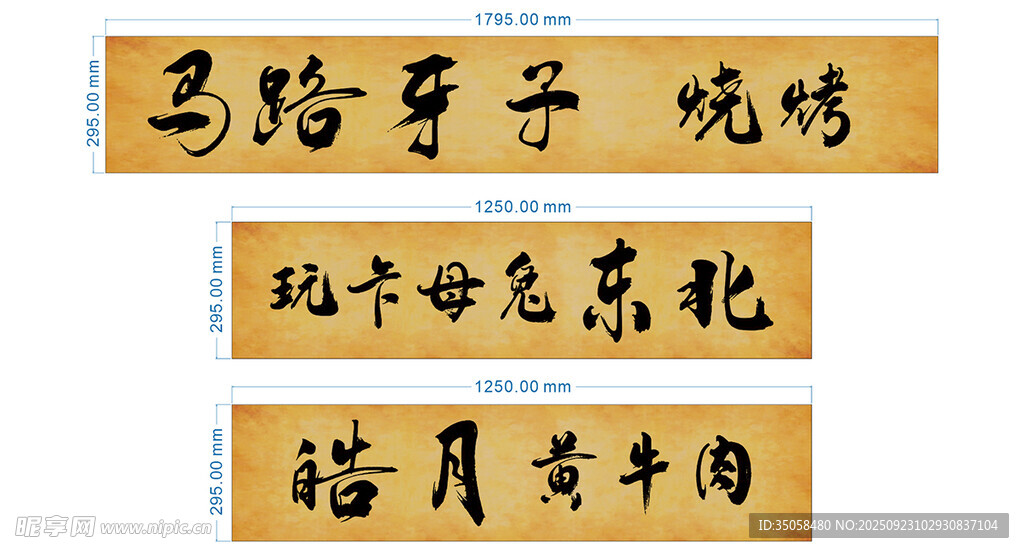 1795.00 mm
295.00 mm
马路牙子 烧烤
1250.00 mm
295.00 mm
玩卡母兔东北
1250.00 mm
295.00 mm
皓月黄牛肉
昵享网 www.nipic.cn
ID:35058480 NO:20250923102930837104